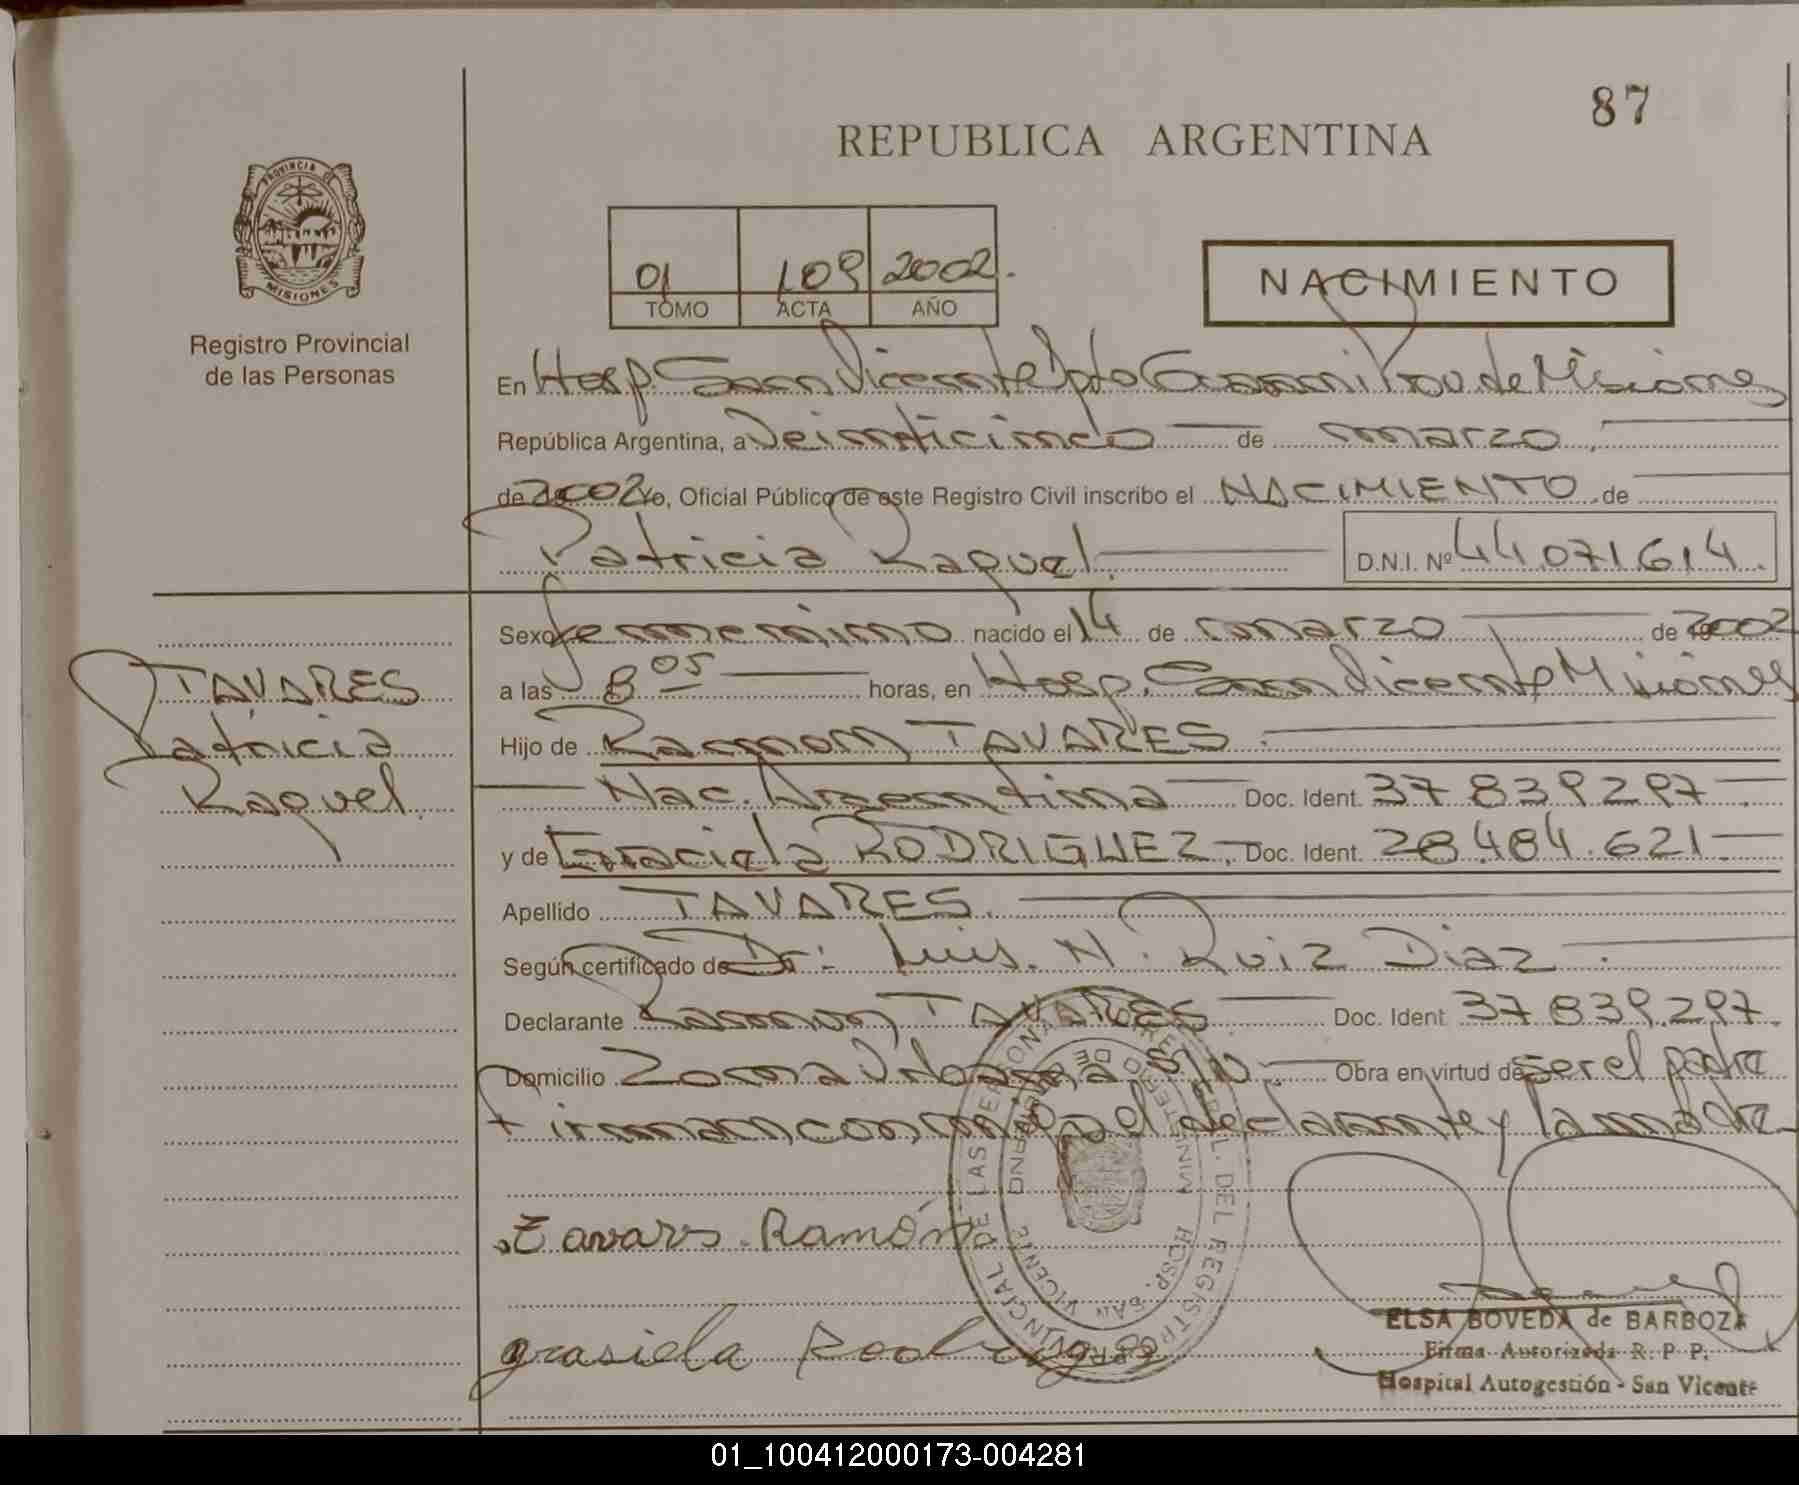 87
REPUBLICA ARGENTINA
PROVINCIA DE
MISIONES
Registro Provincial
de las Personas
01 109 2002.
TOMO ACTA AÑO
NACIMIENTO
En Hosp. San Vicente Dpto Guaraní Prov de Misiones
República Argentina, a Veinticinco de marzo
de 2002 Yo, Oficial Público de este Registro Civil inscribo el NACIMIENTO de
Patricia Raquel. D.N.I. Nº 44.071.614.
Sexo femenino nacido el 14 de marzo de 2002
a las 8 05 horas, en Hosp. San Vicente Misiones
TAVARES
Patricia
Raquel.
Hijo de Ramon TAVARES.
Nac. Argentina Doc. Ident. 37 839 297
y de Graciela RODRIGUEZ, Doc. Ident. 28.484.621
Apellido TAVARES.
Según certificado de Dr: Luis. N. Ruiz Diaz.
Declarante Ramon TAVARES Doc. Ident 37 839.297.
Domicilio Zona Urbana, S/N. Obra en virtud de ser el padre
Firman conmigo el declarante y la madre
Tavars. Ramón
REGISTRO PROVINCIAL DE LAS PERSONAS
HOSP. SAN VICENTE
ELSA BOVEDA de BARBOZA
Firma Autorizada R. P. P.
Hospital Autogestión - San Vicente
grasiela
01_100412000173-004281